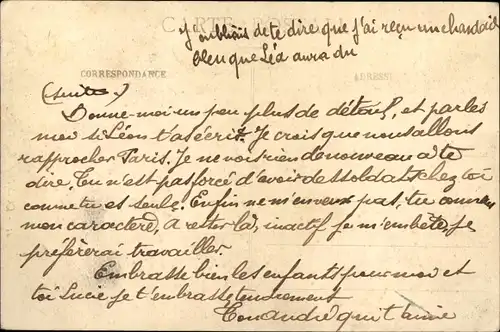 CARTE POSTALE
j'oubliais de te dire que j'ai reçu un chandail
bleu que Léa aura du
CORRESPONDANCE
ADRESSE
(suite)
Donne-moi un peu plus de détails, et parles
moi si Léon t'as écrit. Je crois que nous allons
rapprocher Paris. Je ne vois rien de nouveau a te
dire. Tu n'est pas forcé d'avoir des soldats chez toi
comme tu es seule. Enfin ne m'en veux pas, tu connais
mon caractère, a rester là, inactif je m'embête, je
préfèrerai travailler.
Embrasse bien les enfants pour moi et
toi Lucie je t'embrasse tendrement
Ton André qui t'aime